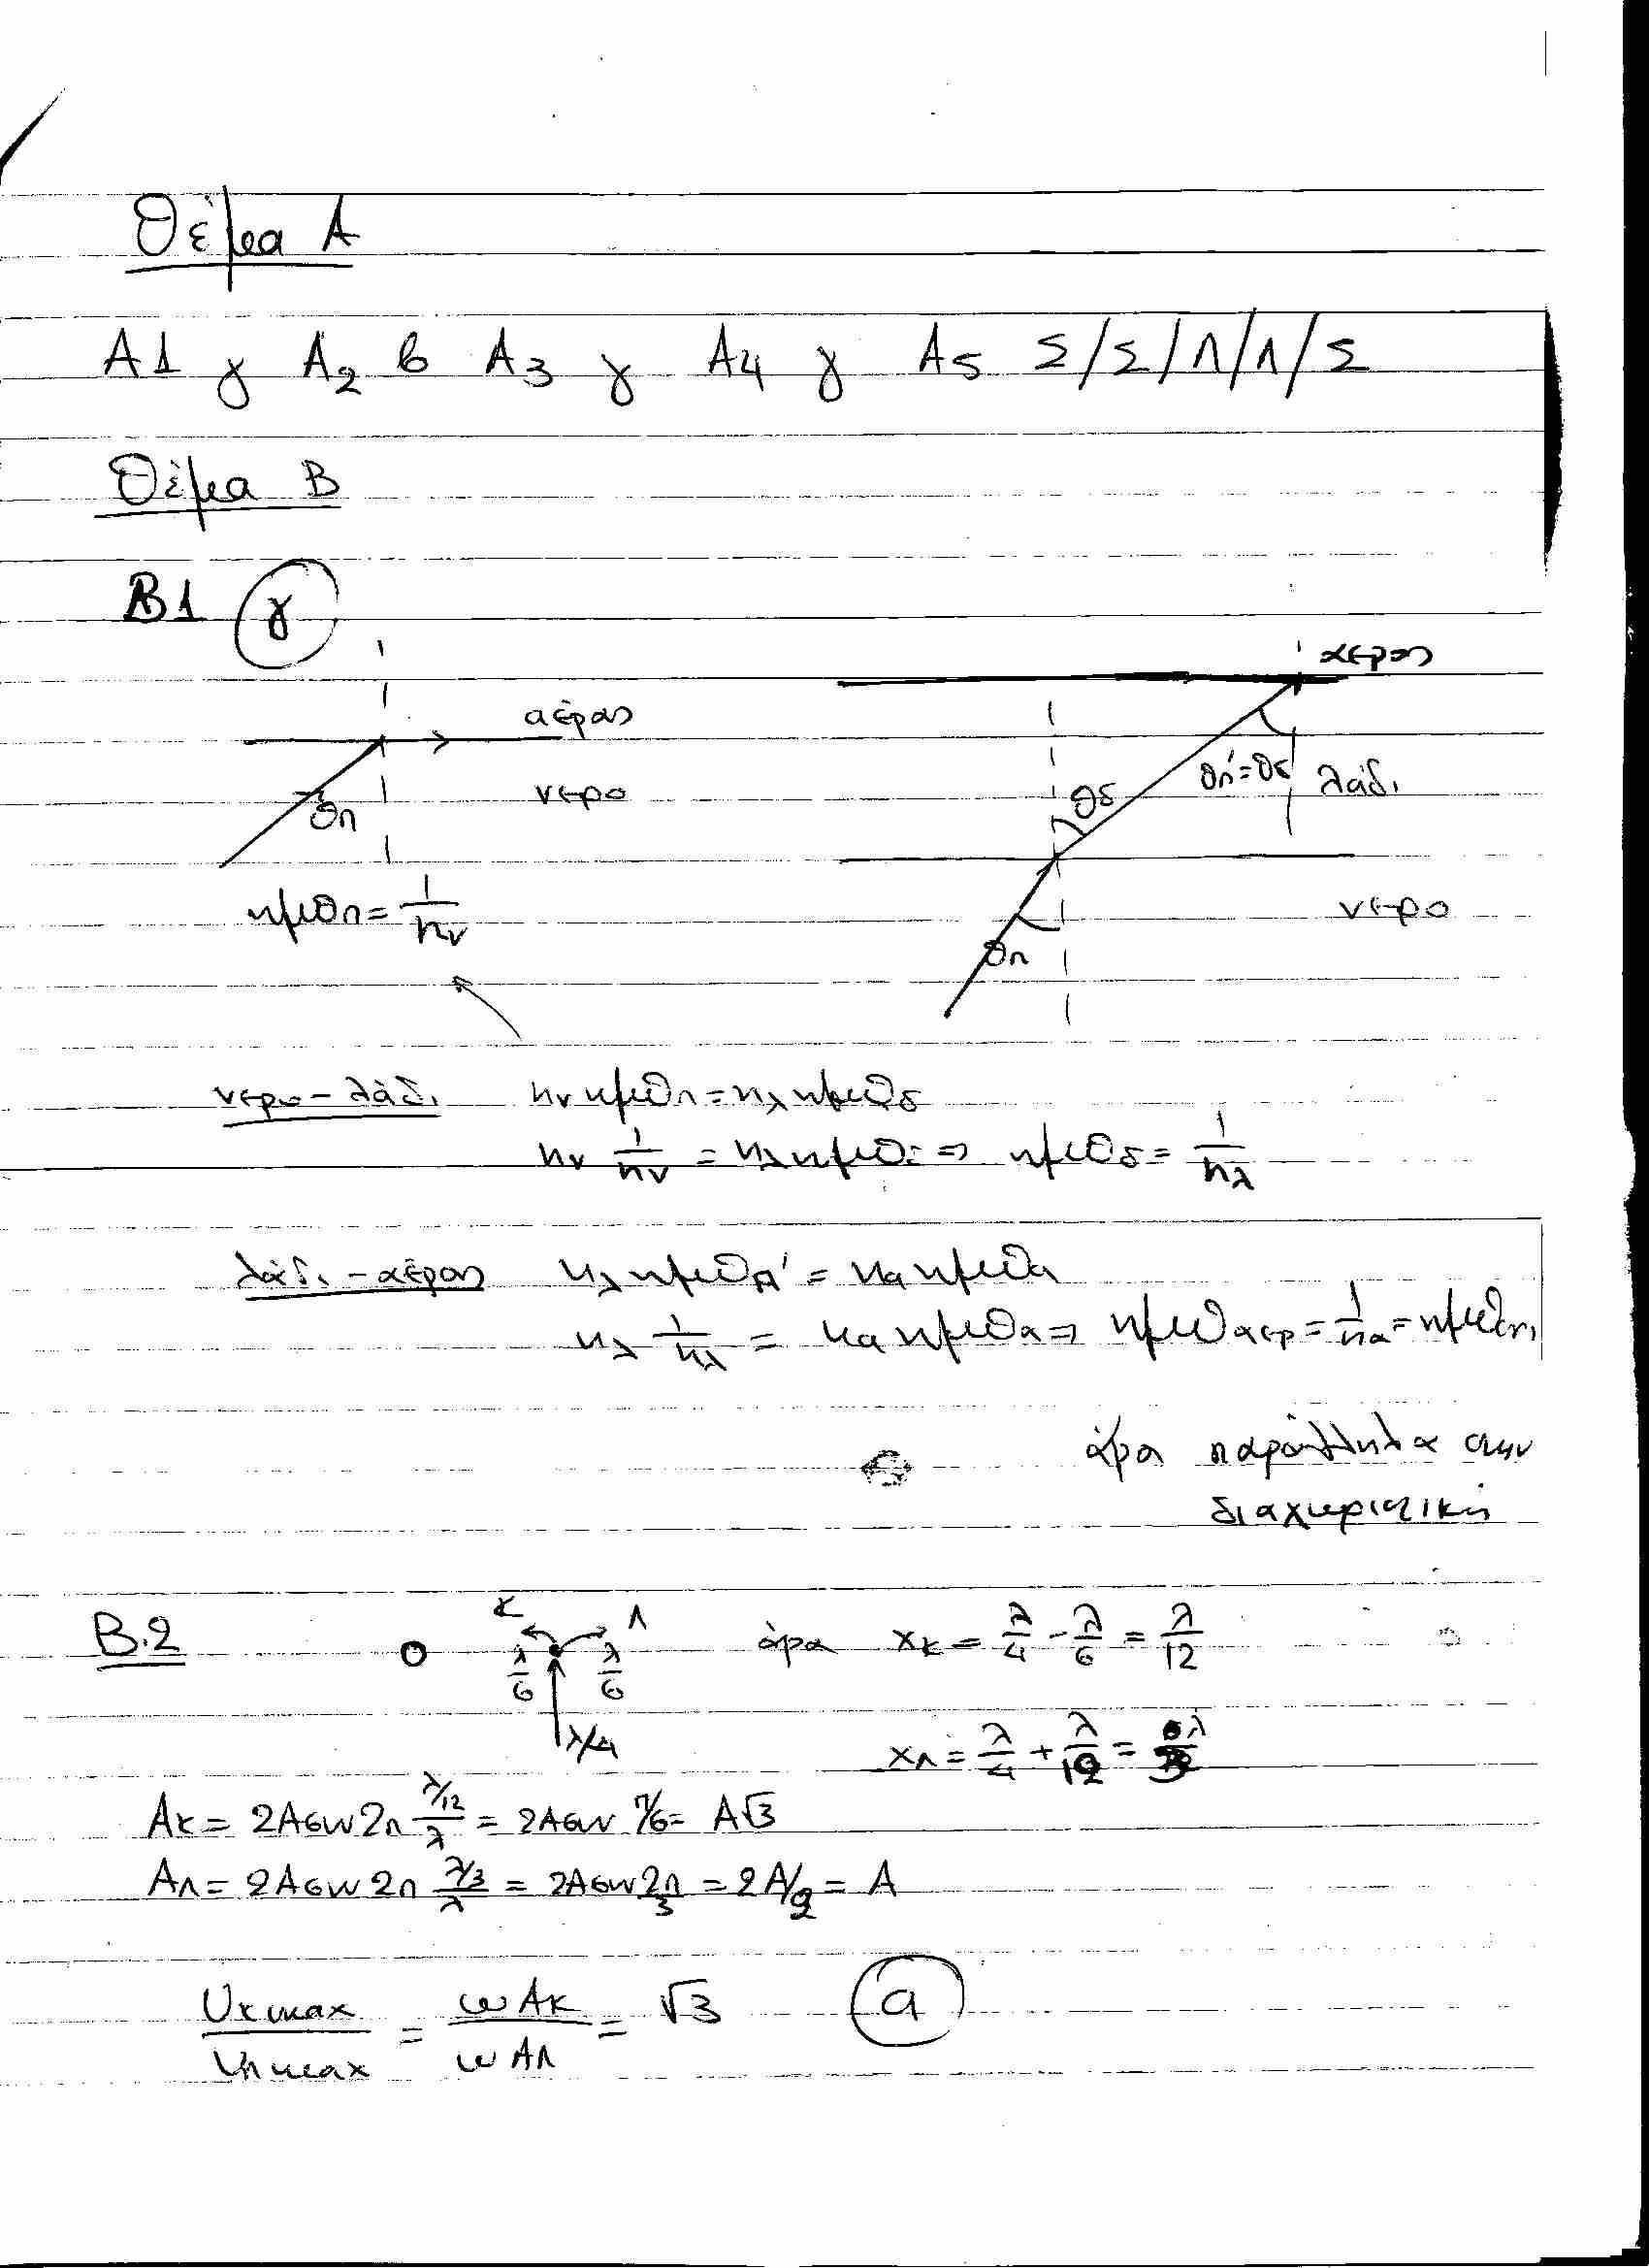 Θέμα Α
A1 γ A2 β A3 γ A4 γ A5 Σ/Σ/Λ/Λ/Σ
Θέμα Β
B1 γ
αέρας
αέρας
νερο
θπ
θδ
θπ'=θδ
λάδι
ημθπ = 1/nν
νερο
θπ
νερο-λάδι nν ημθπ = nλ ημθδ
nν 1/nν = nλ ημθδ ⇒ ημθδ = 1/nλ
λάδι-αέρας nλ ημθπ' = nα ημθα
nλ 1/nλ = nα ημθα ⇒ ημθαερ = 1/nα =
άρα παράλληλα στην
διαχωριστική
B.2 O K Λ λ/6 λ/6 λ/4 άρα xK = λ/4 - λ/6 = λ/12
xΛ = λ/4 + λ/12 =
AK = 2Aσυν2π (λ/12)/λ = 2Aσυν π/6 = A√3
AΛ = 2Aσυν2π (λ/3)/λ = 2Aσυν 2π/3 = 2A/2 = A
UKmax/UΛmax = ωAK/ωAΛ = √3 α